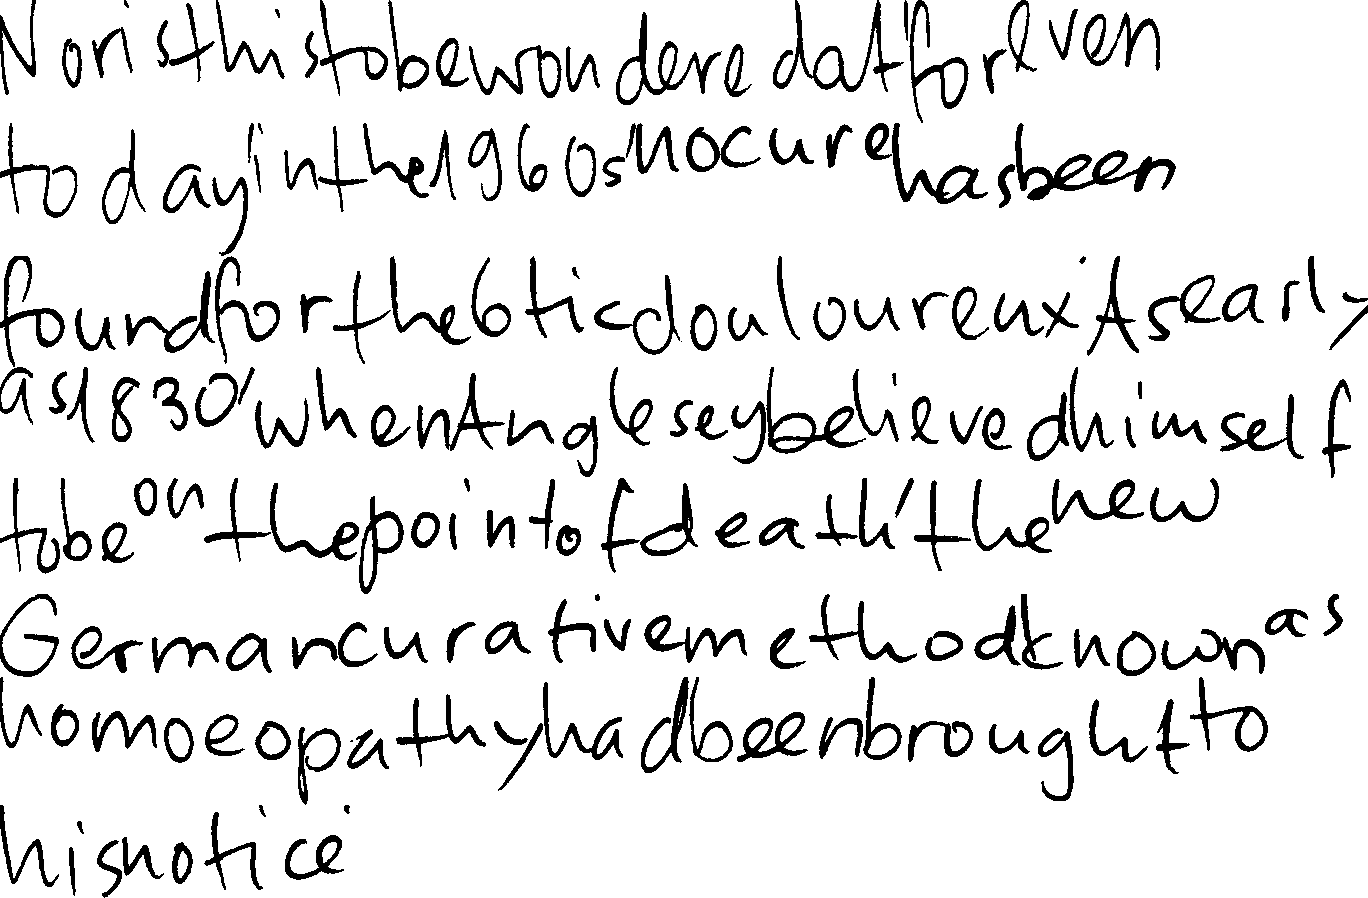 Nor is this to be wondered at, for even
today, in the 1960s, no cure has been
found for the 6 tic douloureux. As early
as 1830, when Anglesey believed himself
to be on the point of death, the new
German curative method known as
homoeopathy had been brought to
his notice.